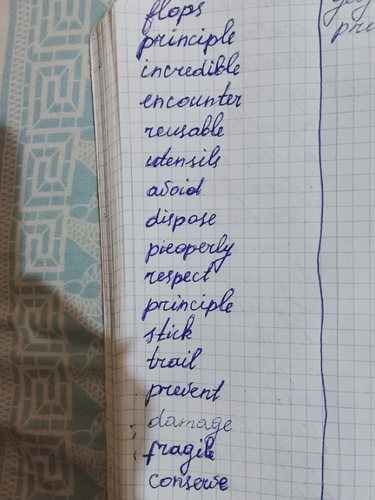 flops
principle
incredible
encounter
reusable
utensils
avoid
dispose
pieoperly
respect
principle
stick
trail
prevent
damage
fragile
conserve